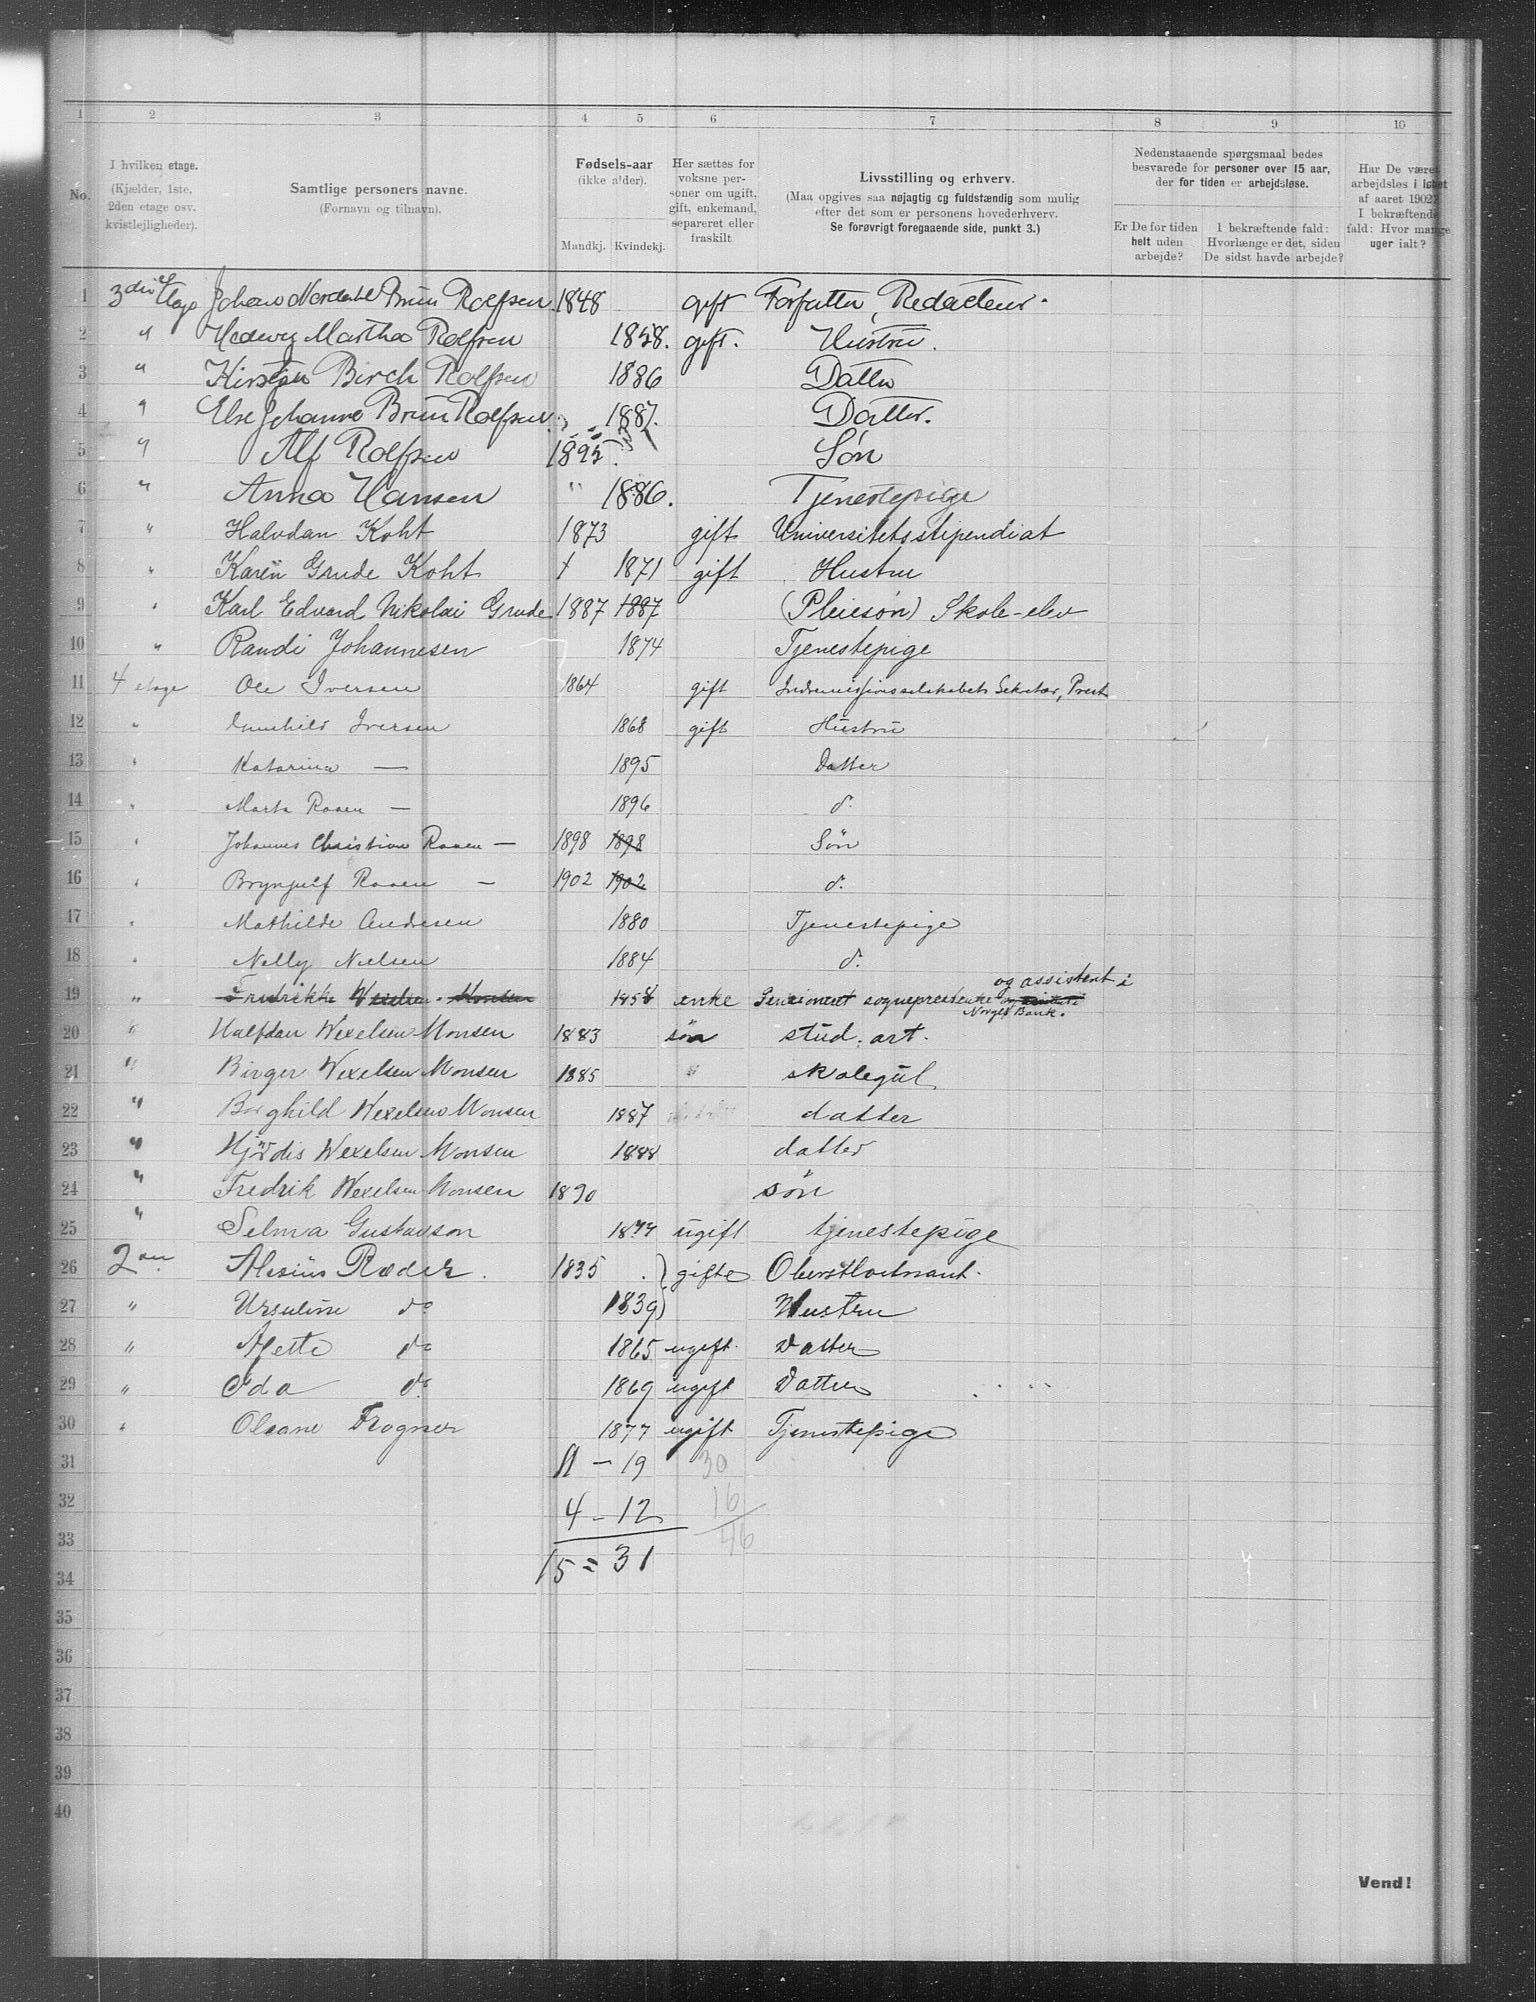 1 2 3 4 5 6 7 8 9 10
No. I hvilken etage. (Kjælder, 1ste, 2den etage osv. kvistlejligheder). Samtlige personers navne. (Fornavn og tilnavn). Fødsels-aar (ikke alder). Mandkj. Kvindekj. Her sættes for voksne personer om ugift, gift, enkemand, separeret eller fraskilt Livsstilling og erhverv. (Maa opgives saa nøjagtig og fuldstændig som mulig efter det som er personens hovederhverv. Se forøvrigt foregaaende side, punkt 3.) Nedenstaaende spørgsmaal bedes besvarede for personer over 15 aar, der for tiden er arbejdsløse. Er De for tiden helt uden arbejde? I bekræftende fald: Hvorlænge er det, siden De sidst havde arbejde? Har De været arbejdsløs i løbet af aaret 1902? I bekræftende fald: Hvor mange uger ialt?
1 3die Etage Johan Nordahl Brun Rolfsen 1848 gift Forfatter, Redacteur.
2 " Hedwig Martha Rolfsen 1858. gift. Hustru.
3 " Kirsten Birch Rolfsen 1886 Datter
4 " Else Johanne Brun Rolfsen. 1887. Datter.
5 " Alf Rolfsen 1895. Søn
6 " Anna Hansen " 1886. Tjenestepige
7 " Halvdan Koht 1873 gift Universitetsstipendiat
8 " Karen Grude Koht 1871 gift Hustru
9 " Karl Edvard Nikolai Grude 1887 1887 (Pleiesøn) Skole-elev
10 " Randi Johannesen 1874 Tjenestepige
11 4 etage Ole Iversen 1864 gift Indremissionsselskabets Sekretær, Prest
12 " Gunhild Iversen 1868 gift Hustru
13 " Katarina — 1895 Datter
14 " Marta Raaen — 1896 d.
15 " Johannes Christian Raaen — 1898 1898 Søn
16 " Brynjulf Raaen — 1902 1902 d.
17 " Mathilde Andresen 1880 Tjenestepige
18 " Nelly Nielsen 1884 d.
og assistent i
19 " Fredrikke Wexelsen Monsen 1858 enke Pensioneret sogneprestenke og
Norges Bank.
20 " Halfdan Wexelsen Monsen 1883 søn stud. art.
21 " Birger Wexelsen Monsen 1885 " skolegut
22 " Borghild Wexelsen Monsen 1887 datter
23 " Hjørdis Wexelsen Monsen 1888 datter
24 " Fredrik Wexelsen Monsen 1890 søn
25 " Selma Gustavson 1877 ugift tjenestepige
26 2den Alesius Ræder. 1835 gifte Oberstløitnant.
27 " Ursuline do 1839 Hustru
28 " Agette do 1865 ugift. Datter
29 " Ida do 1869 ugift Datter
30 " Oleane Frogner 1877 ugift Tjenestepige
31 11 – 19 30
32 4 – 12 16
33 15 = 31 46
34
35
36
37
38
39
40
Vend!